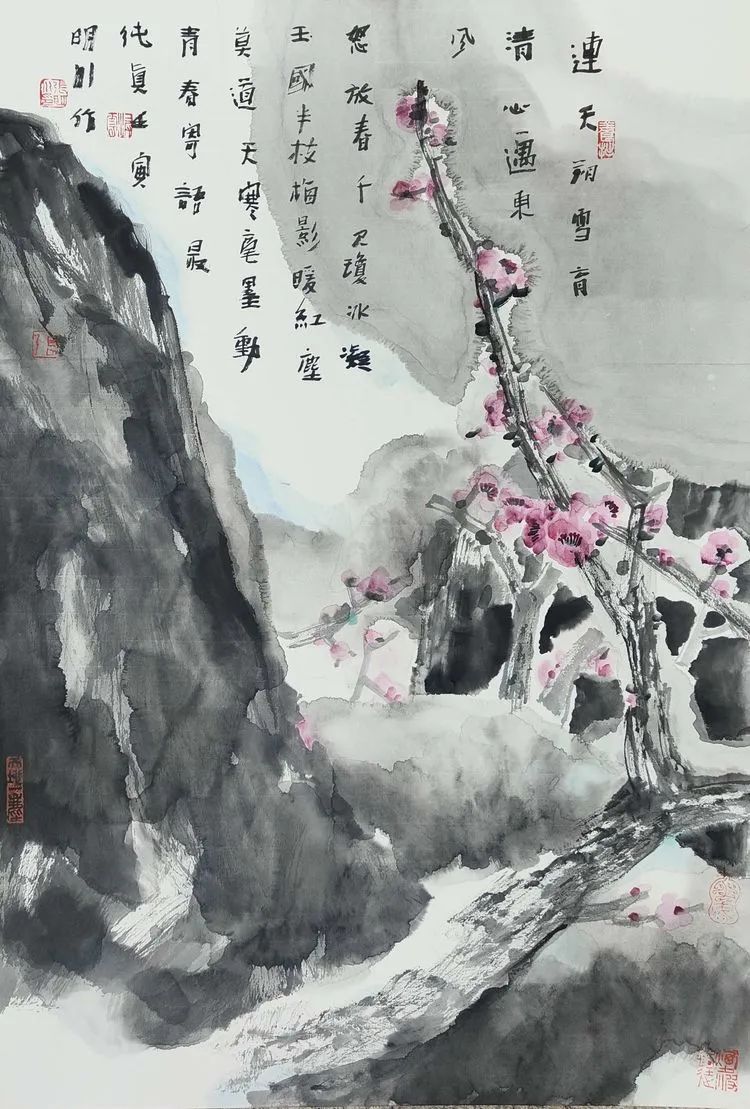 連天朔雪育
清心遇東
風
怒放春千尺瓊冰凝
玉國半枝梅影暖紅塵
莫道天寒毫墨動
青春寄語最
純真壬寅
明川作